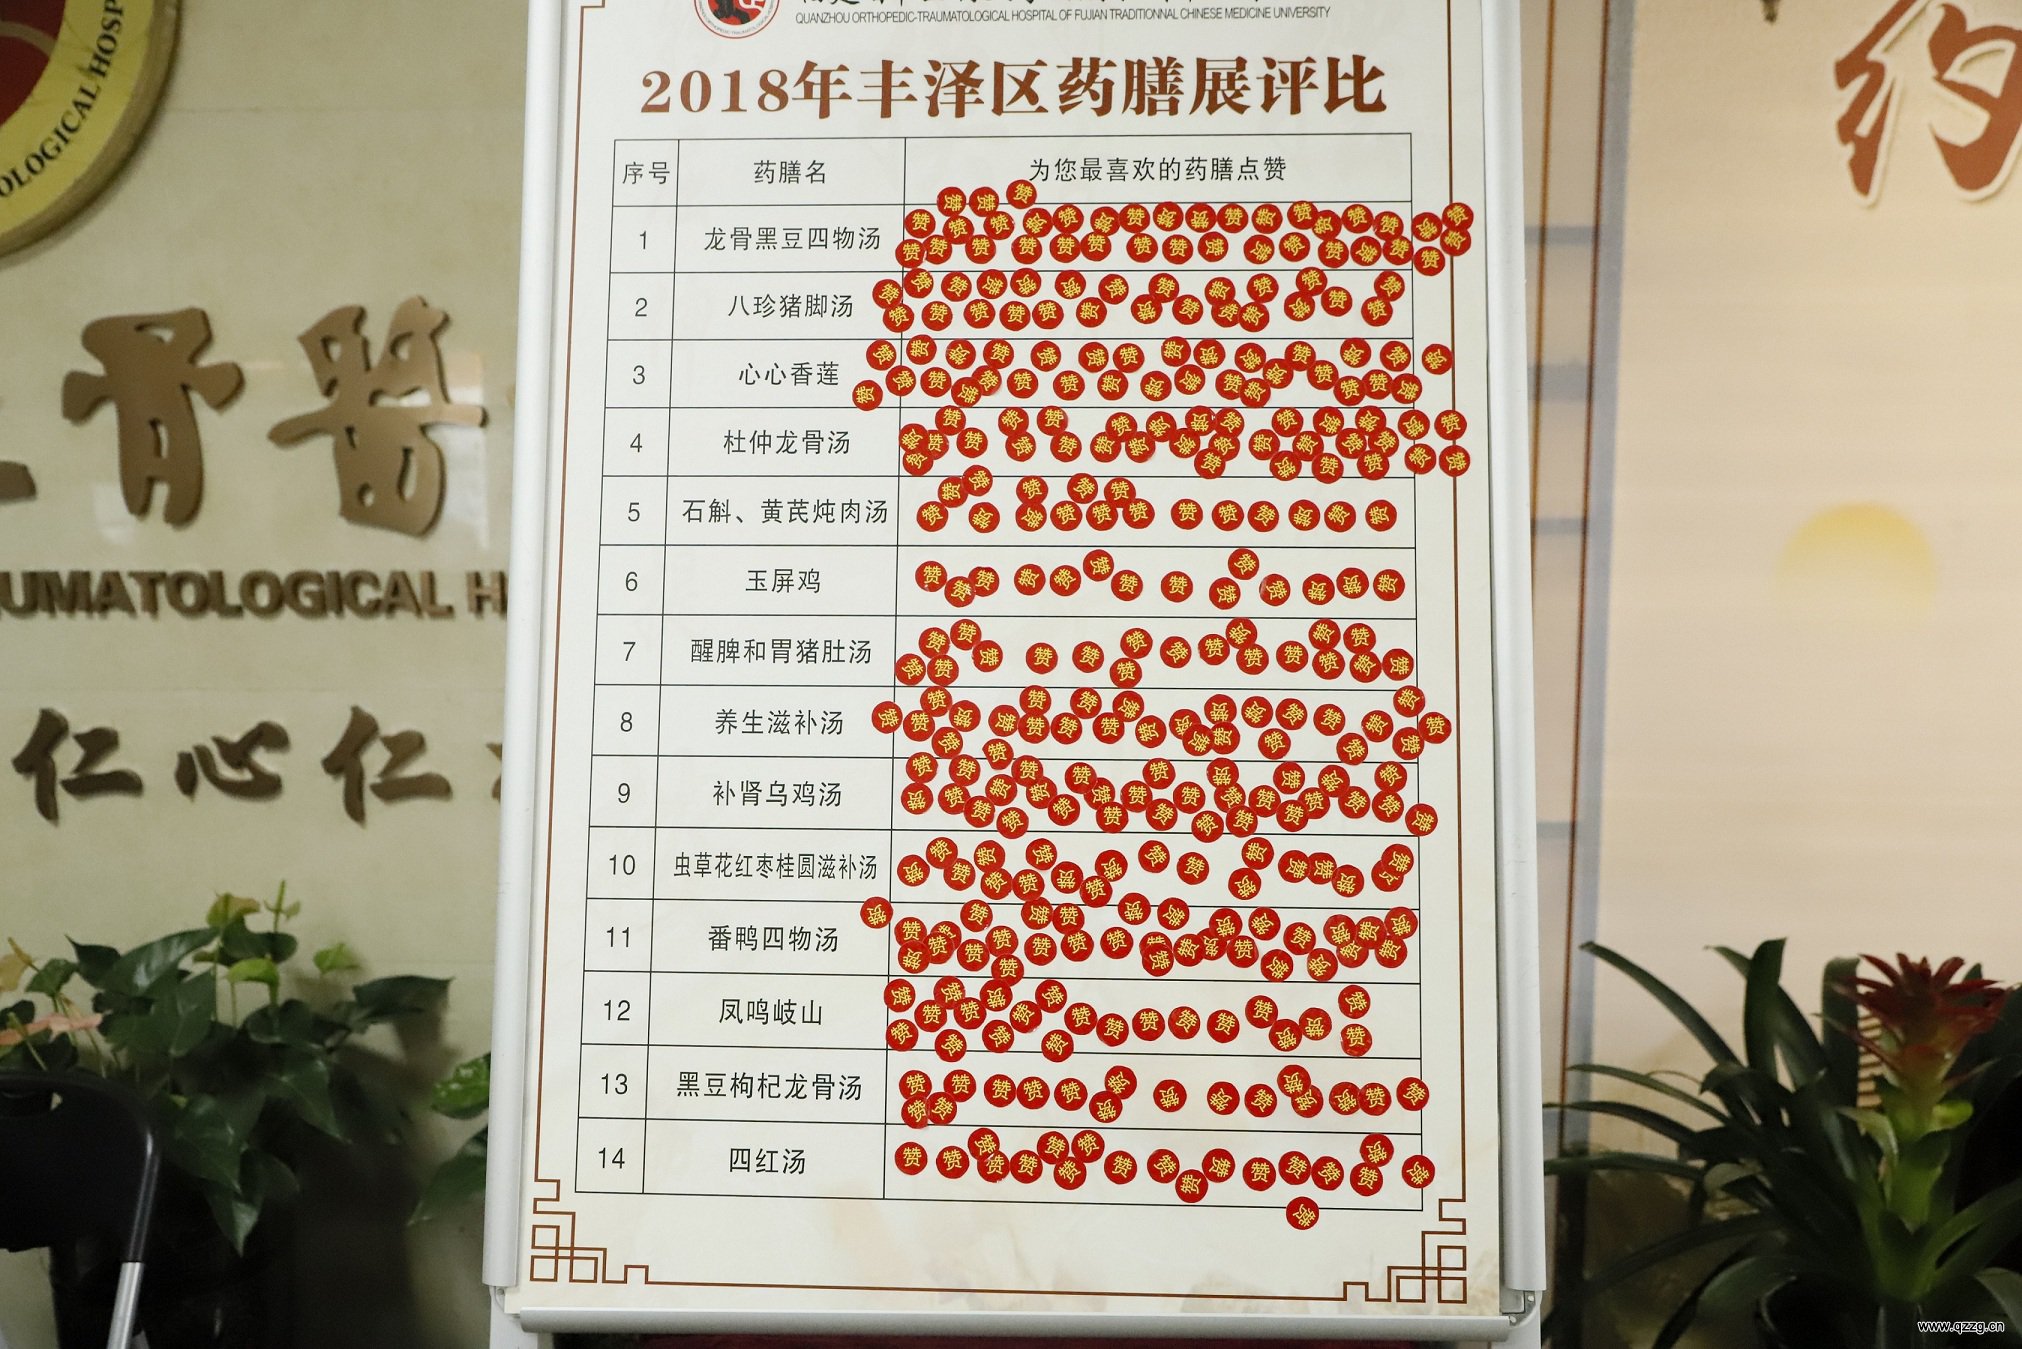 QUANZHOU ORTHOPEDIC-TRAUMATOLOGICAL HOSPITAL OF FUJIAN TRADITIONNAL CHINESE MEDICINE UNIVERSITY
2018年丰泽区药膳展评比
序号 药膳名 为您最喜欢的药膳点赞
1 龙骨黑豆四物汤
2 八珍猪脚汤
3 心心香莲
4 杜仲龙骨汤
5 石斛、黄芪炖肉汤
6 玉屏鸡
7 醒脾和胃猪肚汤
8 养生滋补汤
9 补肾乌鸡汤
10 虫草花红枣桂圆滋补汤
11 番鸭四物汤
12 凤鸣岐山
13 黑豆枸杞龙骨汤
14 四红汤
赞
OLOGICAL HOSP
骨醫
UMATOLOGICAL H
仁心仁
www.qzzg.cn